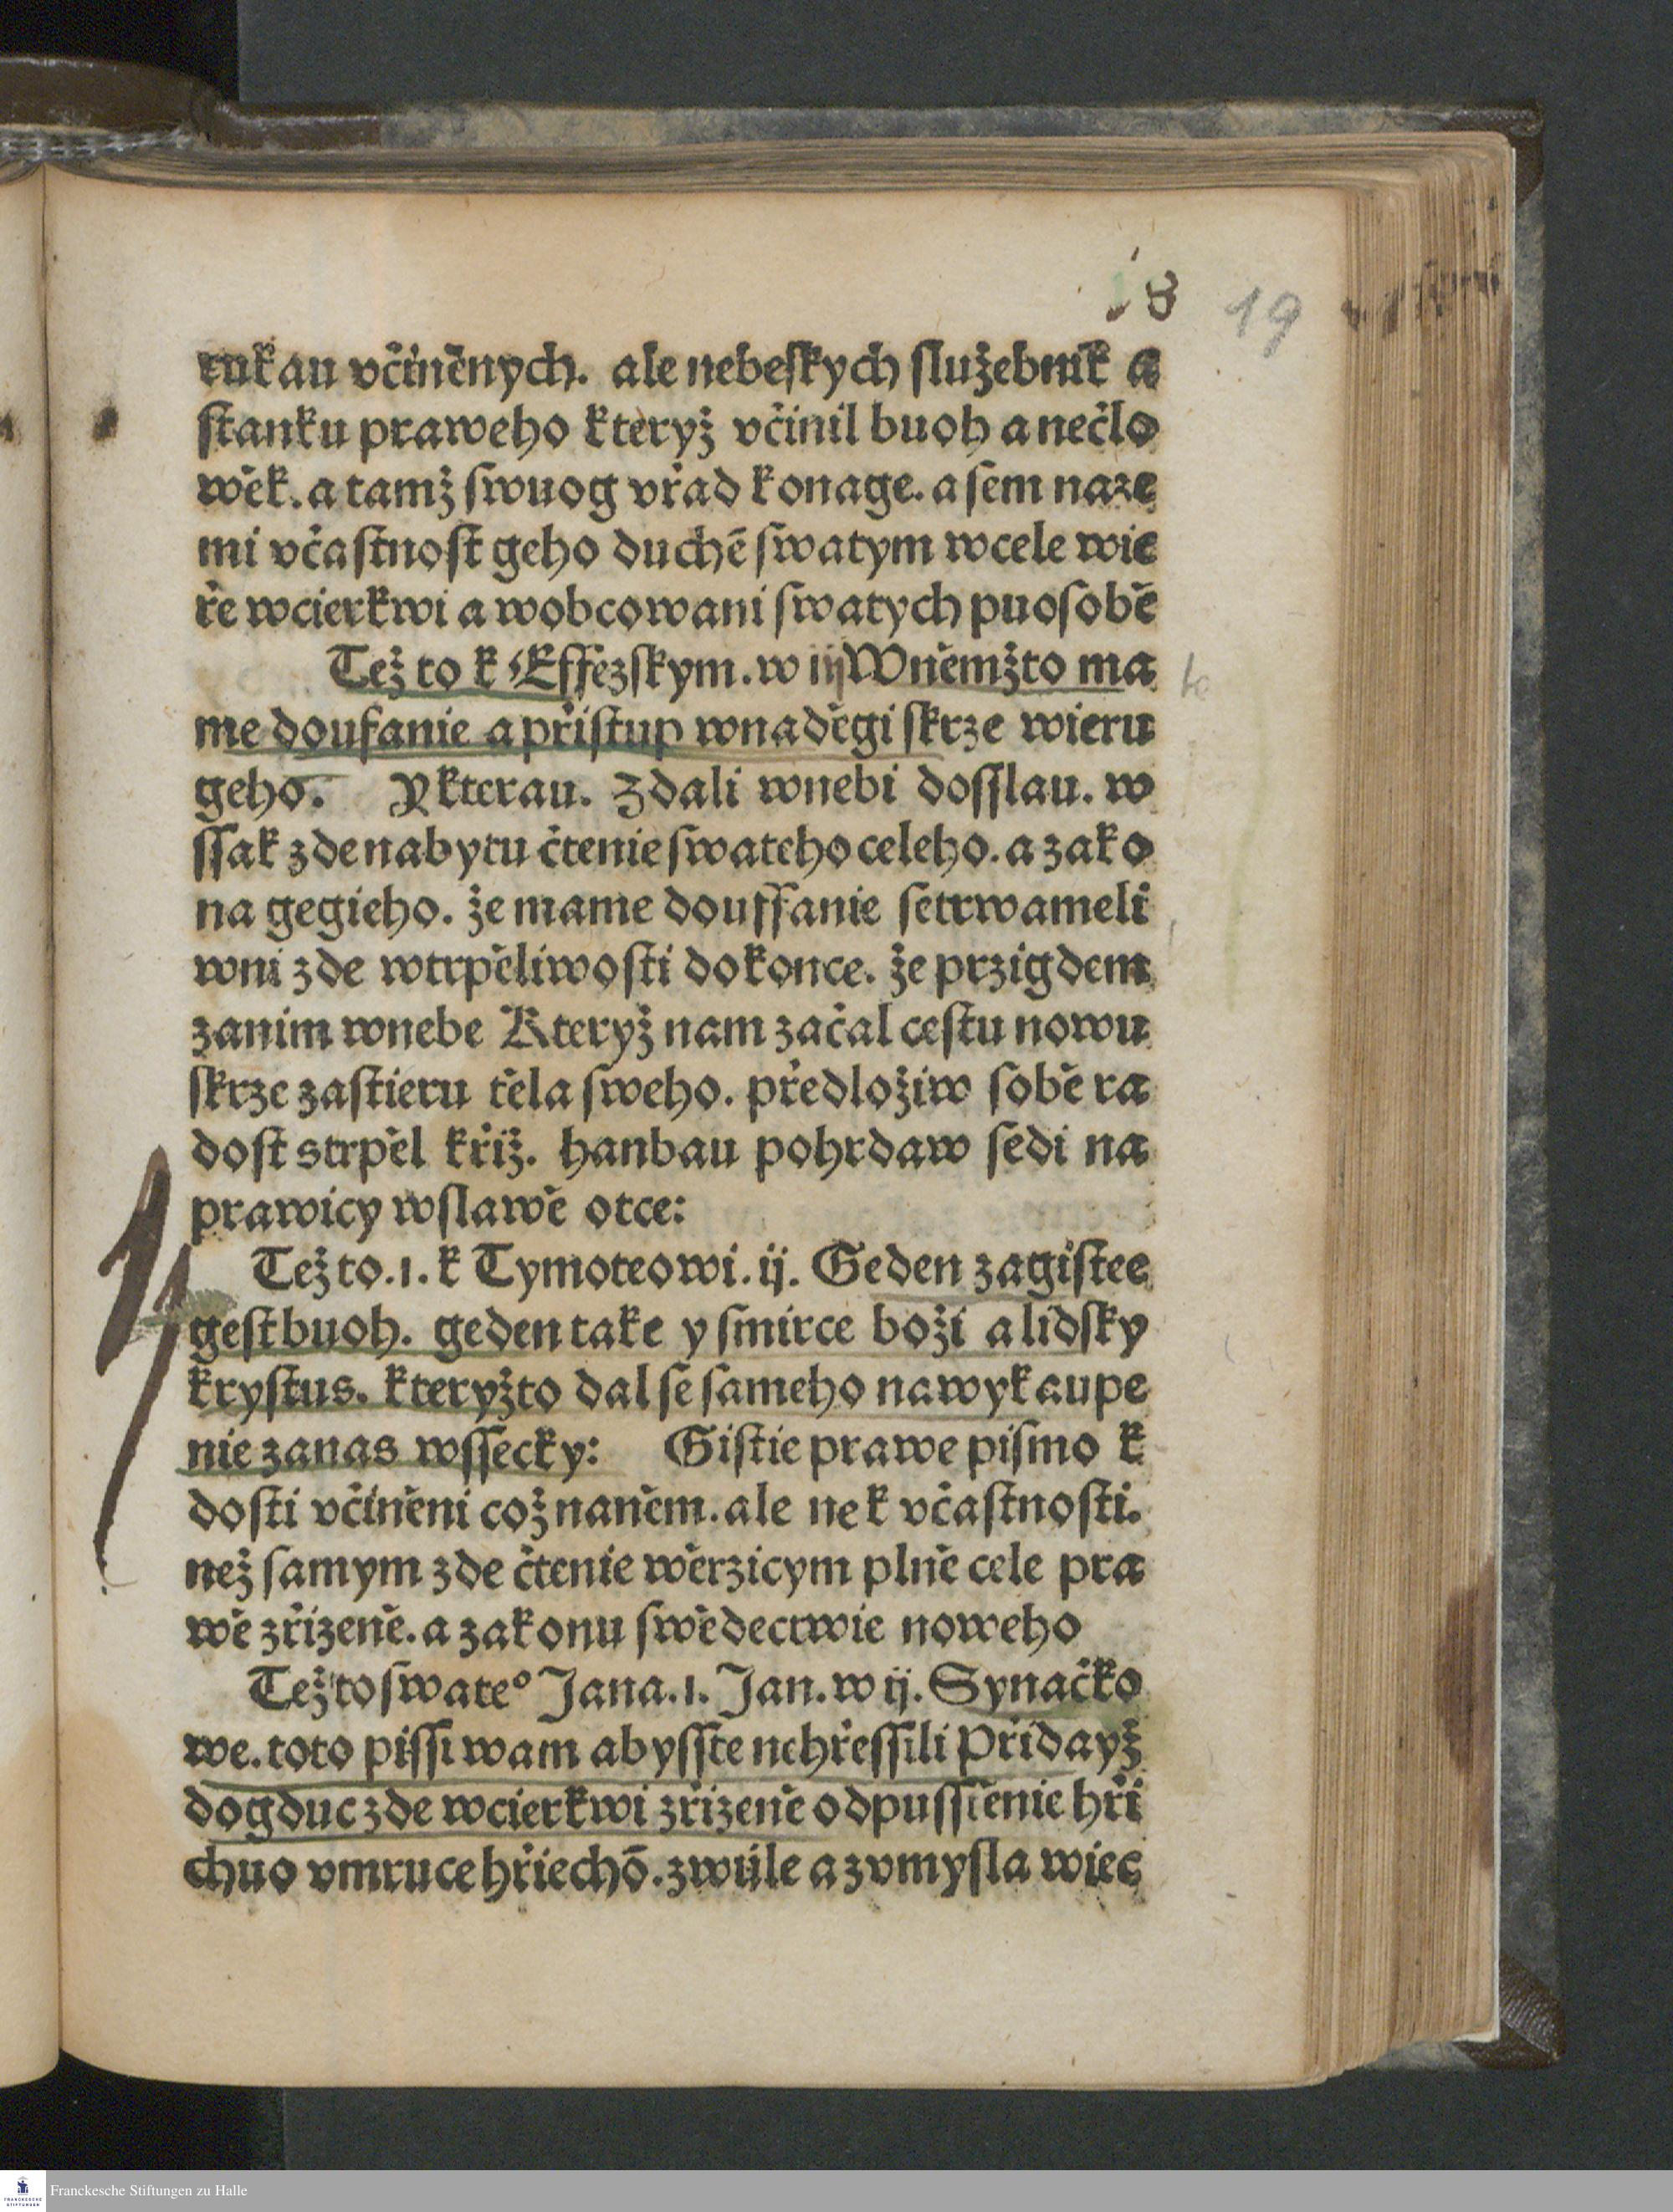 18 19
rukau včiněnych. ale nebeſkych ſlužebnik a
ſtanku praweho kteryž včinil buoh a nečlo
wěk. a tamž ſwuog vřad konage. a ſem naze
mi včaſtnoſt geho duchē ſwatym wcele wie
ře wcierkwi a wobcowani ſwatych puoſobě
Též to k Effezſkym. w iij Wněmžto ma
me doufanie a přiſtup wnaděgi ſkrze wieru
geho. Y kterau. Zdali wnebi doſſlau. w
ſſak zde nabytu čtenie ſwateho celeho. a zako
na gegieho. že mame douffanie ſetrwameli
wni zde wtrpěliwoſti dokonce. že przigdem
zanim wnebe Kteryž nam začal ceſtu nowu
ſkrze zaſtieru těla ſweho. předložiw ſobě ra
doſt strpěl křiž. hanbau pohrdaw ſedi na
prawicy wſlawě otce:
Též to. 1. k Tymoteowi. ij. Geden zagiſtee
geſt buoh. geden take y ſmirce boži a lidſky
kryſtus. kteryžto dal ſe ſameho nawykaupe
nie zanas wſſecky: Giſtie prawe piſmo k
doſti včiněni což naněm. ale ne k včaſtnoſti.
než ſamym zde čtenie wěrzicym plně cele pra
wě zřizeně. a zakonu ſwědectwie noweho
Též to ſwateº Jana. 1. Jan. w ij. Synačko
we. toto piſſi wam abyſſte nehřeſſili Přidayž
dogduc zde wcierkwi zřizeně odpuſſtěnie hři
chuo vmruce hřiechō. zwúle a zvmyſla wiec
Franckesche Stiftungen zu Halle